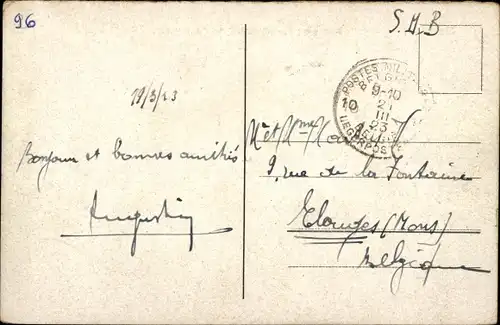 96
S.M.B
19/3/23
Bonjour et bonnes amitiés
Augustin
POSTES MILIT
BELG
9-10
10
21
III
23
LEGERPOST
Mr et Mme
9, rue de la Fontaine
Elouges (Mons)
Belgique